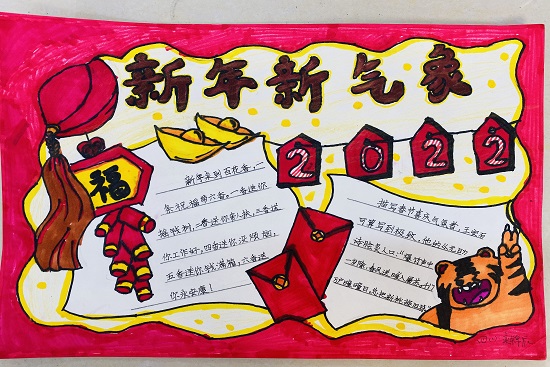 新年新气象
2022
福
新年来到百花香，一
条祝福带六香。一香送你
摇钱树，二香送你
你工作好，四香送你没烦恼，
五香送你钱满箱，六香送
你永安康！
描写春节喜庆气氛者，王安石
可算写到极致，他的《元日》
脍炙人口，“爆竹声中
一岁除，春风送暖入屠苏。千门
万户曈曈日，总把新桃换旧符。”